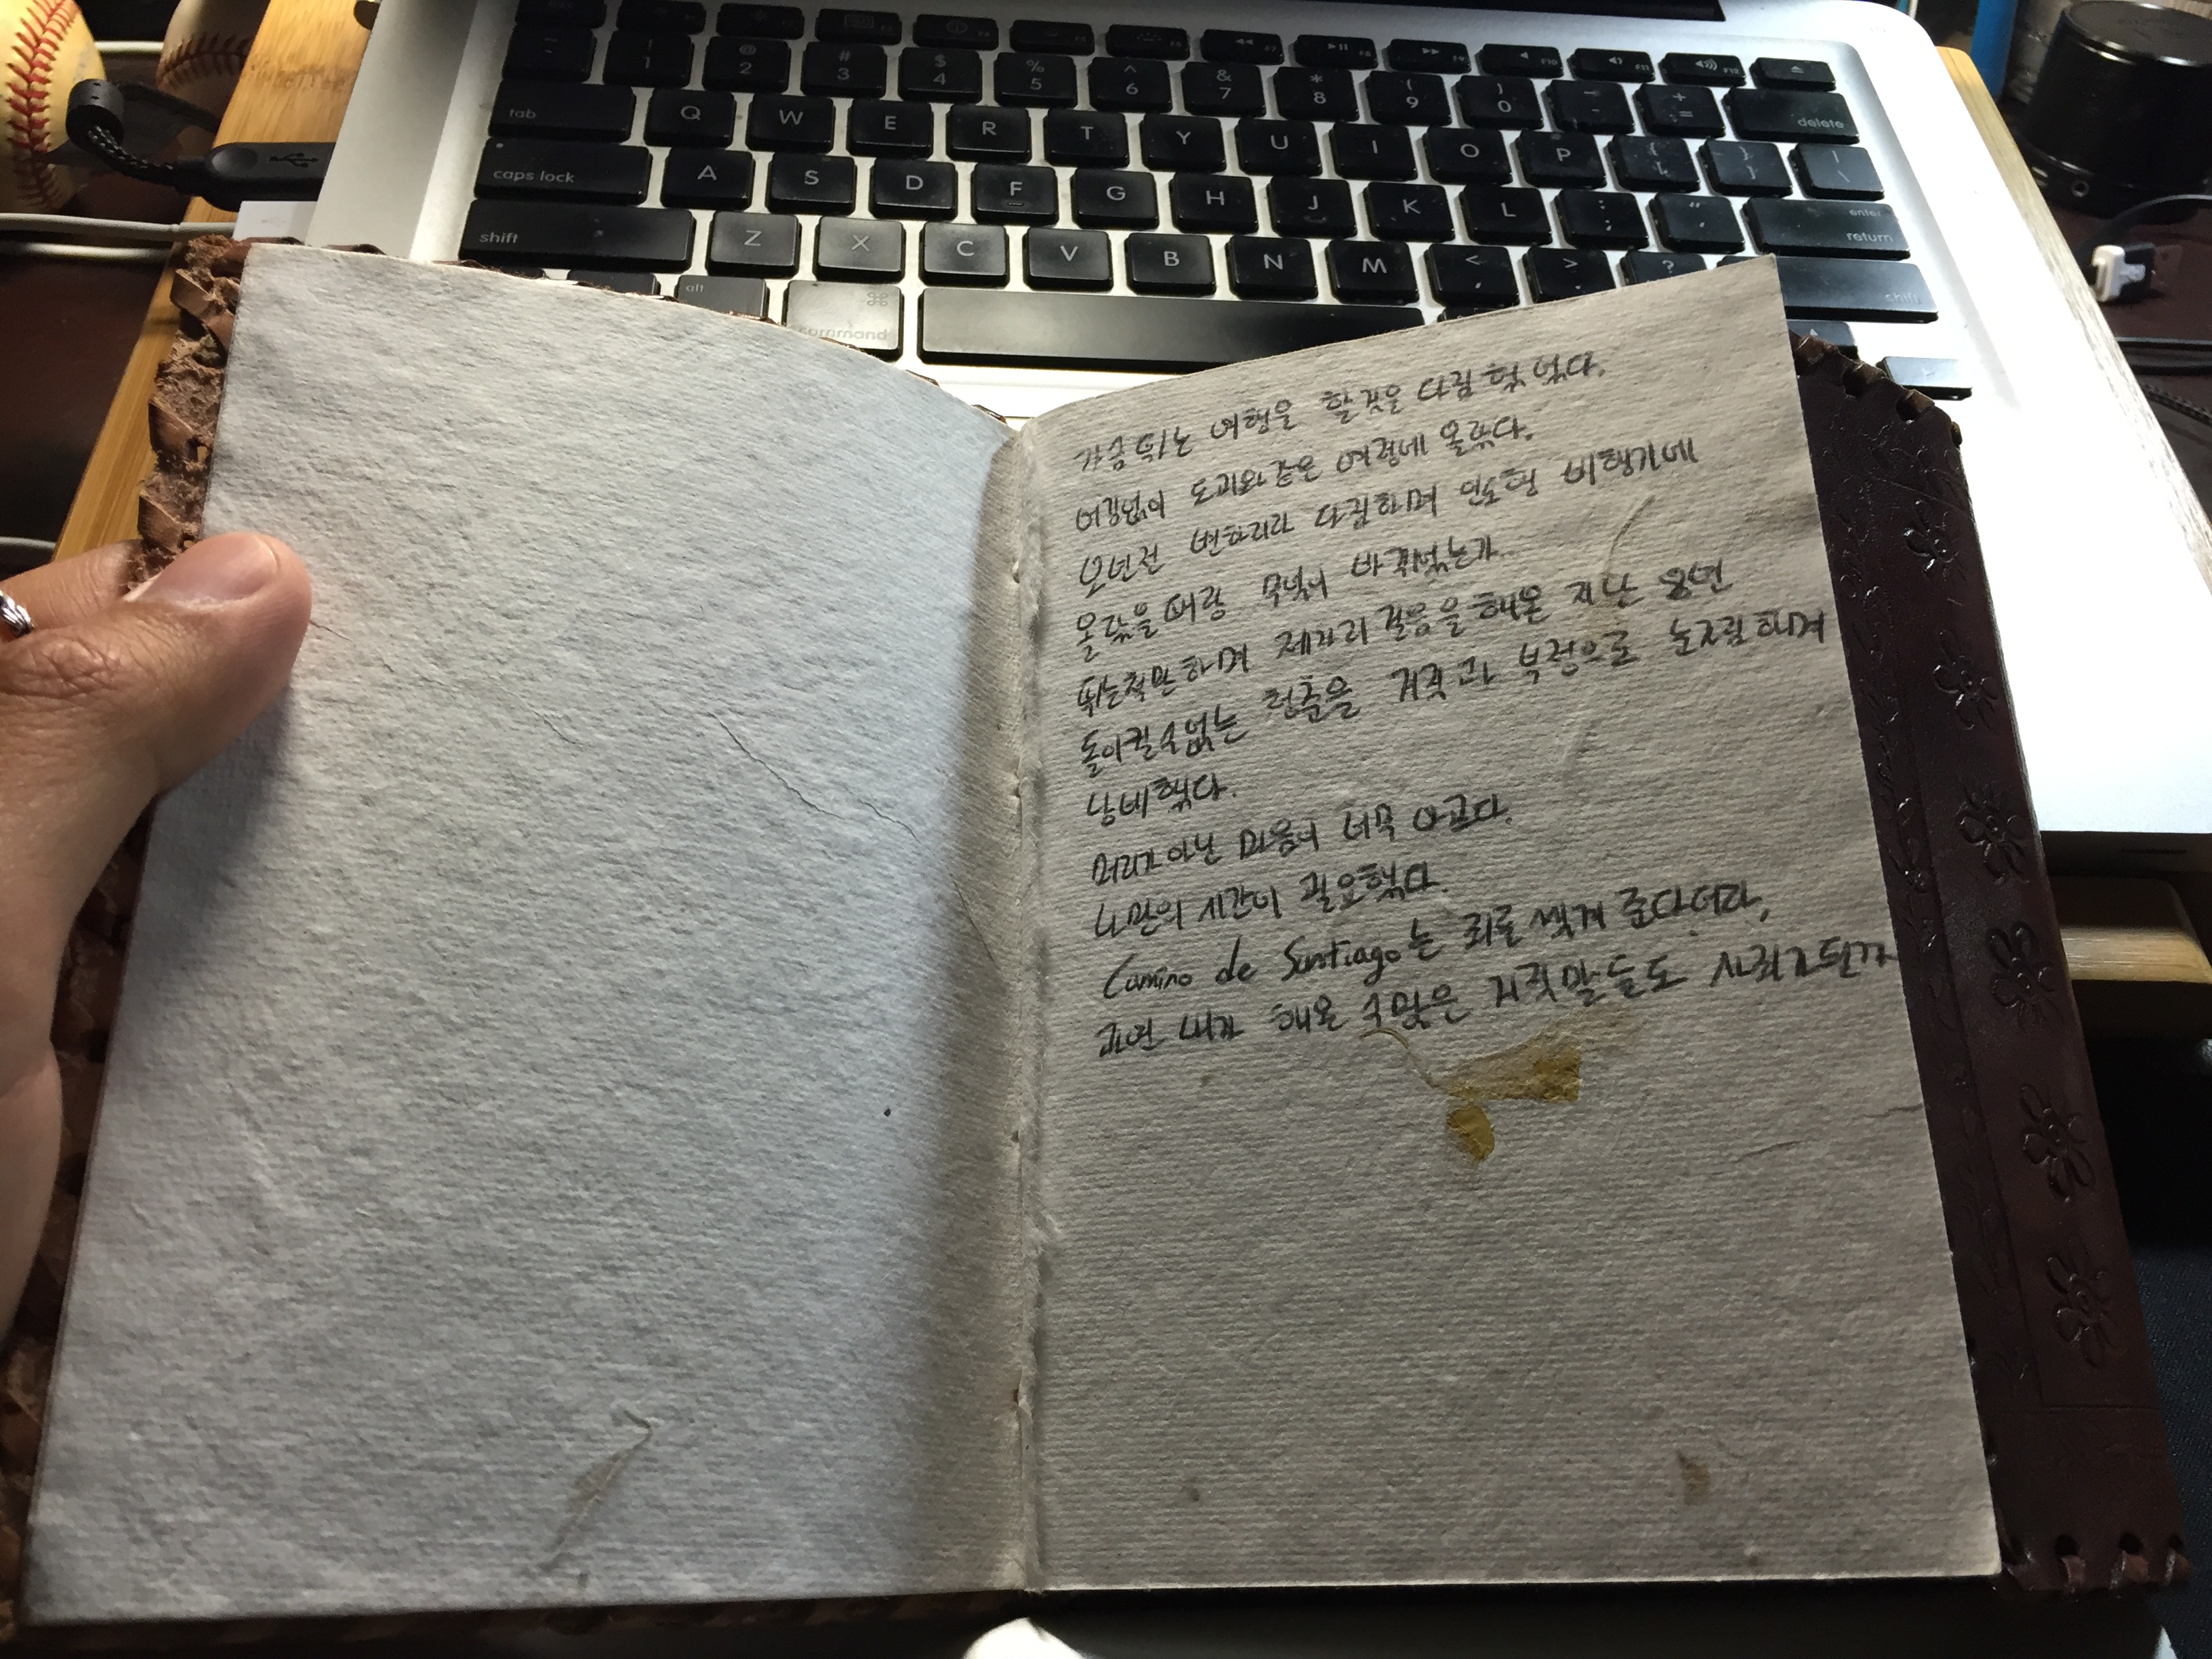 esc
~ ` ! 1 @ 2 # 3 $ 4 % 5 ^ 6 & 7 * 8 ( 9 ) 0 - + = delete
tab Q W E R T Y U I O P { [ } ] | \
caps lock A S D F G H J K L : ; " ' enter return
shift Z X C V B N M < , > . ? shift
alt ⌘ command
가슴뛰는 여행을 할것을 다짐 했었다.
어김없이 도피와 같은 여정에 올랐다.
오년전 변하리라 다짐하며 인도행 비행기에
올랐을때랑 무엇이 바뀌었는가.
뛰는척만 하며 제자리 걸음을 해온 지난 5년
돌이킬수없는 청춘을 거짓과 부정으로 눈가림하며
낭비했다.
머리가 아닌 마음이 너무 아프다.
나만의 시간이 필요했다.
Camino de Santiago는 죄를 씻게 준다더라,
과연 내가 해온 수많은 거짓말들도 사죄가 될까